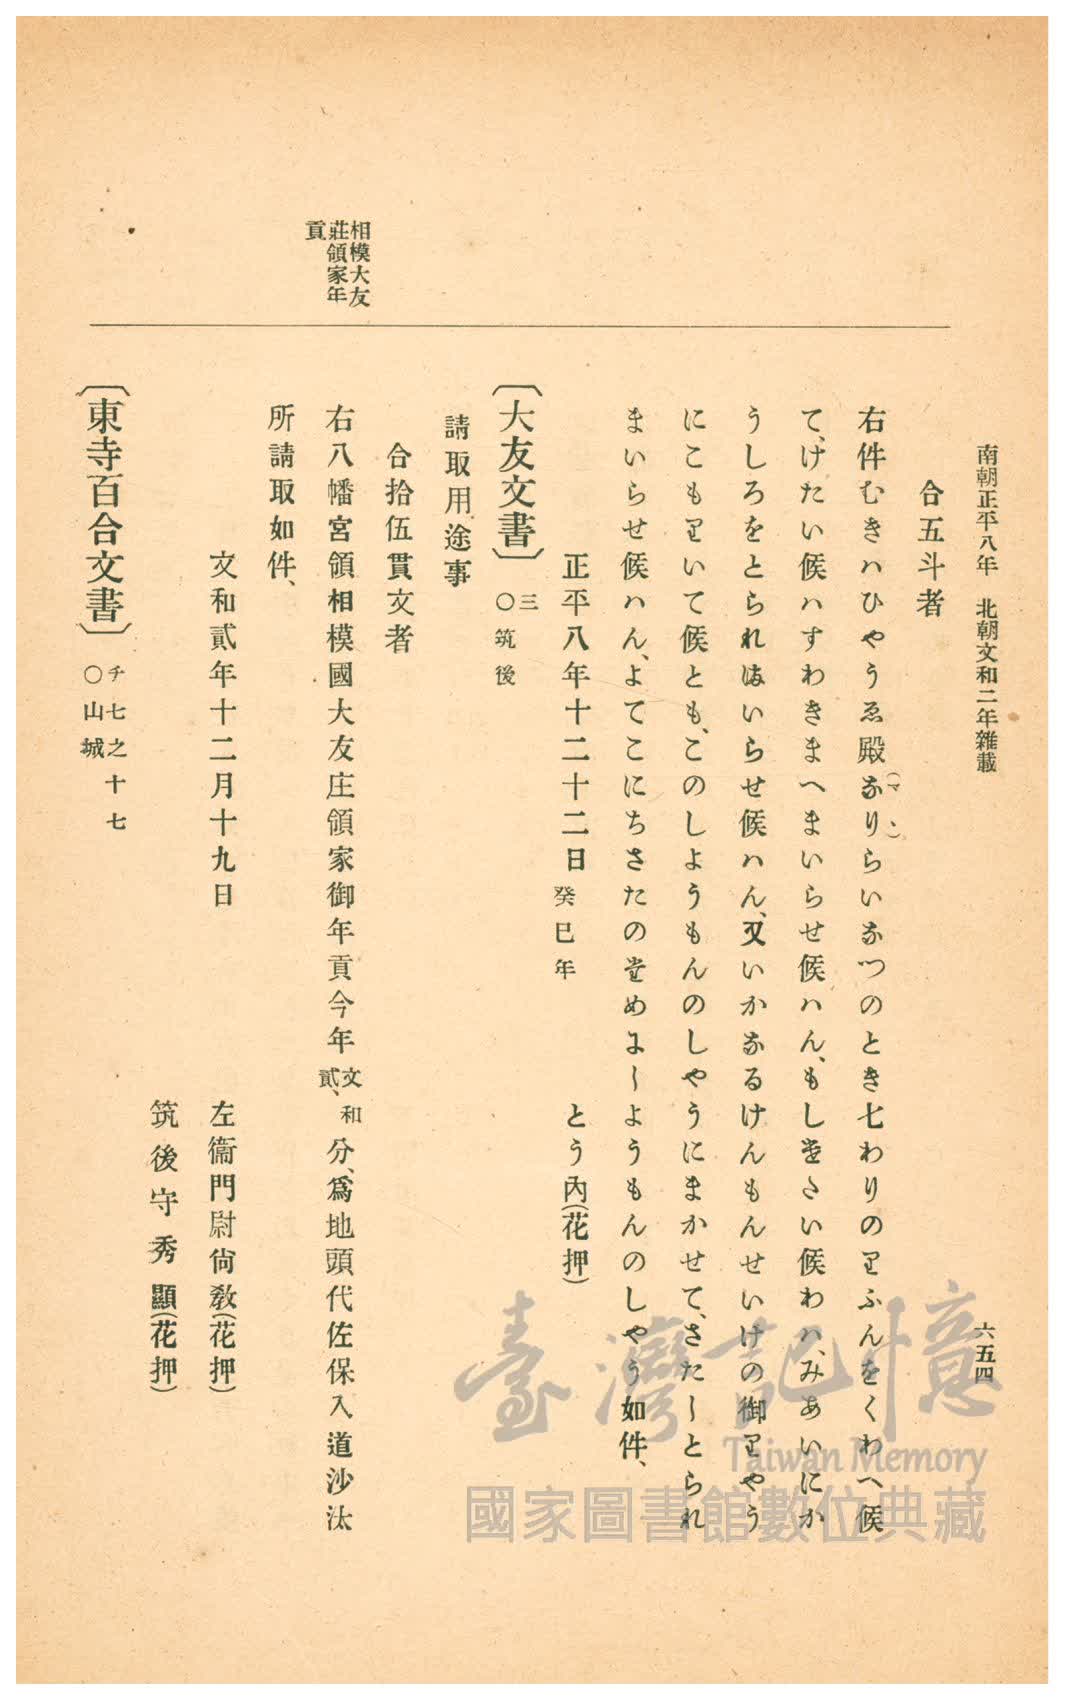 南朝正平八年　北朝文和二年雜載
六五四
合五斗者
右件むきハひやうゑ殿なりらい(マヽ)なつのとき七わりのりふんをくわへ候
て、けたい候ハすわきまへまいらせ候ハん、もしたさい候わハ、みあいにか
うしろをとられまいらせ候ハん、又いかなるけんもんせいけの御りやう
にこもりいて候とも、このしようもんのしやうにまかせて、さたしとられ
まいらせ候ハん、よてこにちさたのためによしようもんのしやう如件、
正平八年十二十二日癸巳年　とう内(花押)
〔大友文書〕三○筑後
請取用途事
合拾伍貫文者
相模大友莊領家年貢
右八幡宮領相模國大友庄領家御年貢今年文和貳、分、爲地頭代佐保入道沙汰
所請取如件、
文和貳年十二月十九日　左衞門尉尙敎(花押)
筑後守秀顯(花押)
〔東寺百合文書〕チ七之十七○山城
臺灣記憶
Taiwan Memory
國家圖書館數位典藏